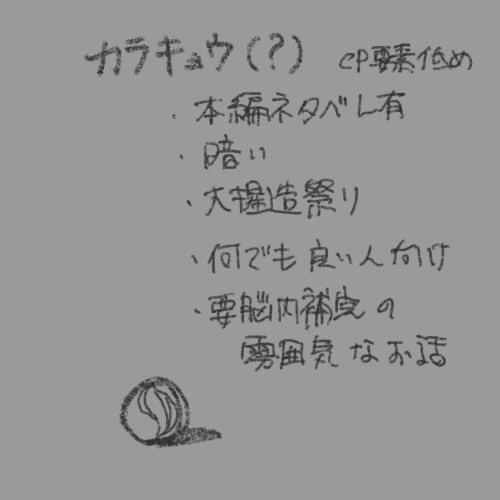 カラキュウ(?) CP要素低め
・本編ネタバレ有
・暗い
・大捏造祭り
・何でも良い人向け
・要脳内補完の
雰囲気なお話